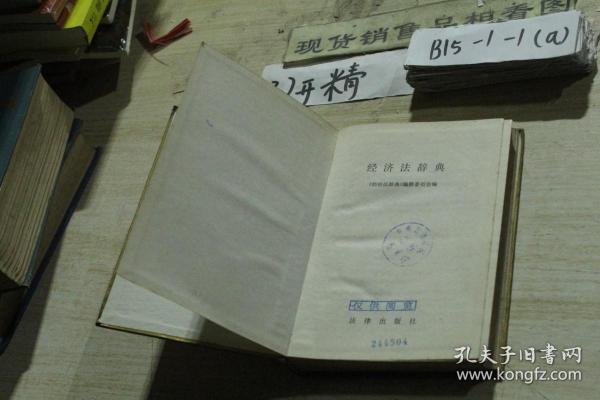 现货销售品相看图
B15-1-1(a)
开精
经济法辞典
《经济法辞典》编辑委员会编
仅供阅览
法律出版社
244504
孔夫子旧书网
www.kongfz.com